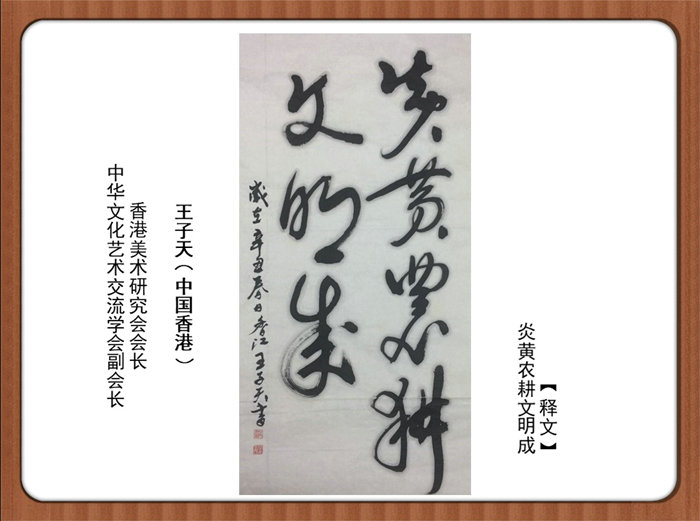 【释文】
炎黄农耕文明成
炎黄農耕
文明成
歲在辛丑春日香江王子天書
王子天（中国香港）
香港美术研究会会长
中华文化艺术交流学会副会长